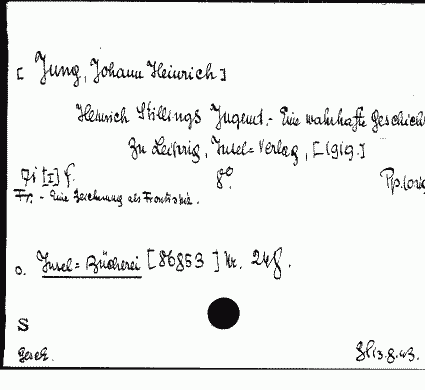 [ Jung, Johann Heinrich ]
Heinrich Stillings Jugend.- Eine wahrhafte Geschich
Zu Leipzig, Insel=Verlag, [1919.]
71 [I] f. 8°. Pp.(orig
Fr. - Eine Zeichnung als Frontispiz.
o. Insel=Bücherei [86853 ] Nr.
S
Gesch. 13.8.43.